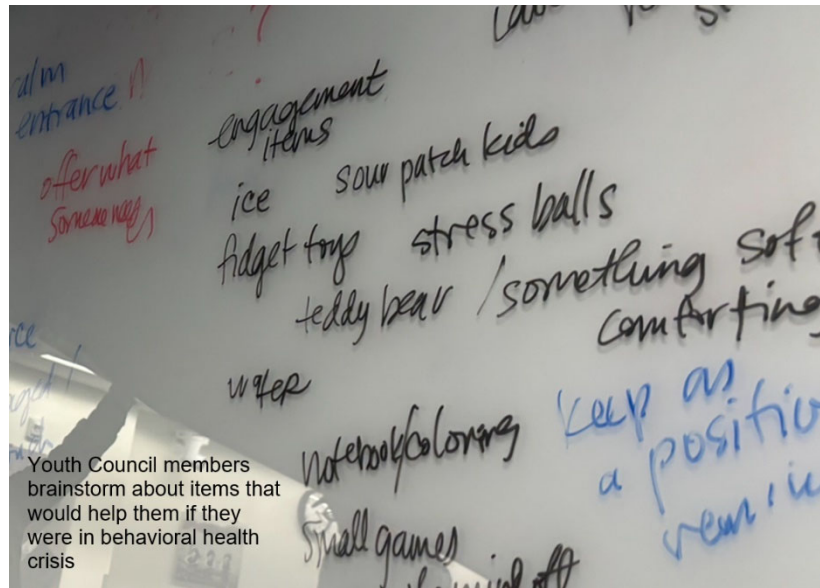 calm
entrance
offer what
someone needs
engagement
items
ice sour patch kids
fidget toys stress balls
teddy bear / something soft
comforting
water
notebook/coloring
small games
keep as
a positive
Youth Council members
brainstorm about items that
would help them if they
were in behavioral health
crisis